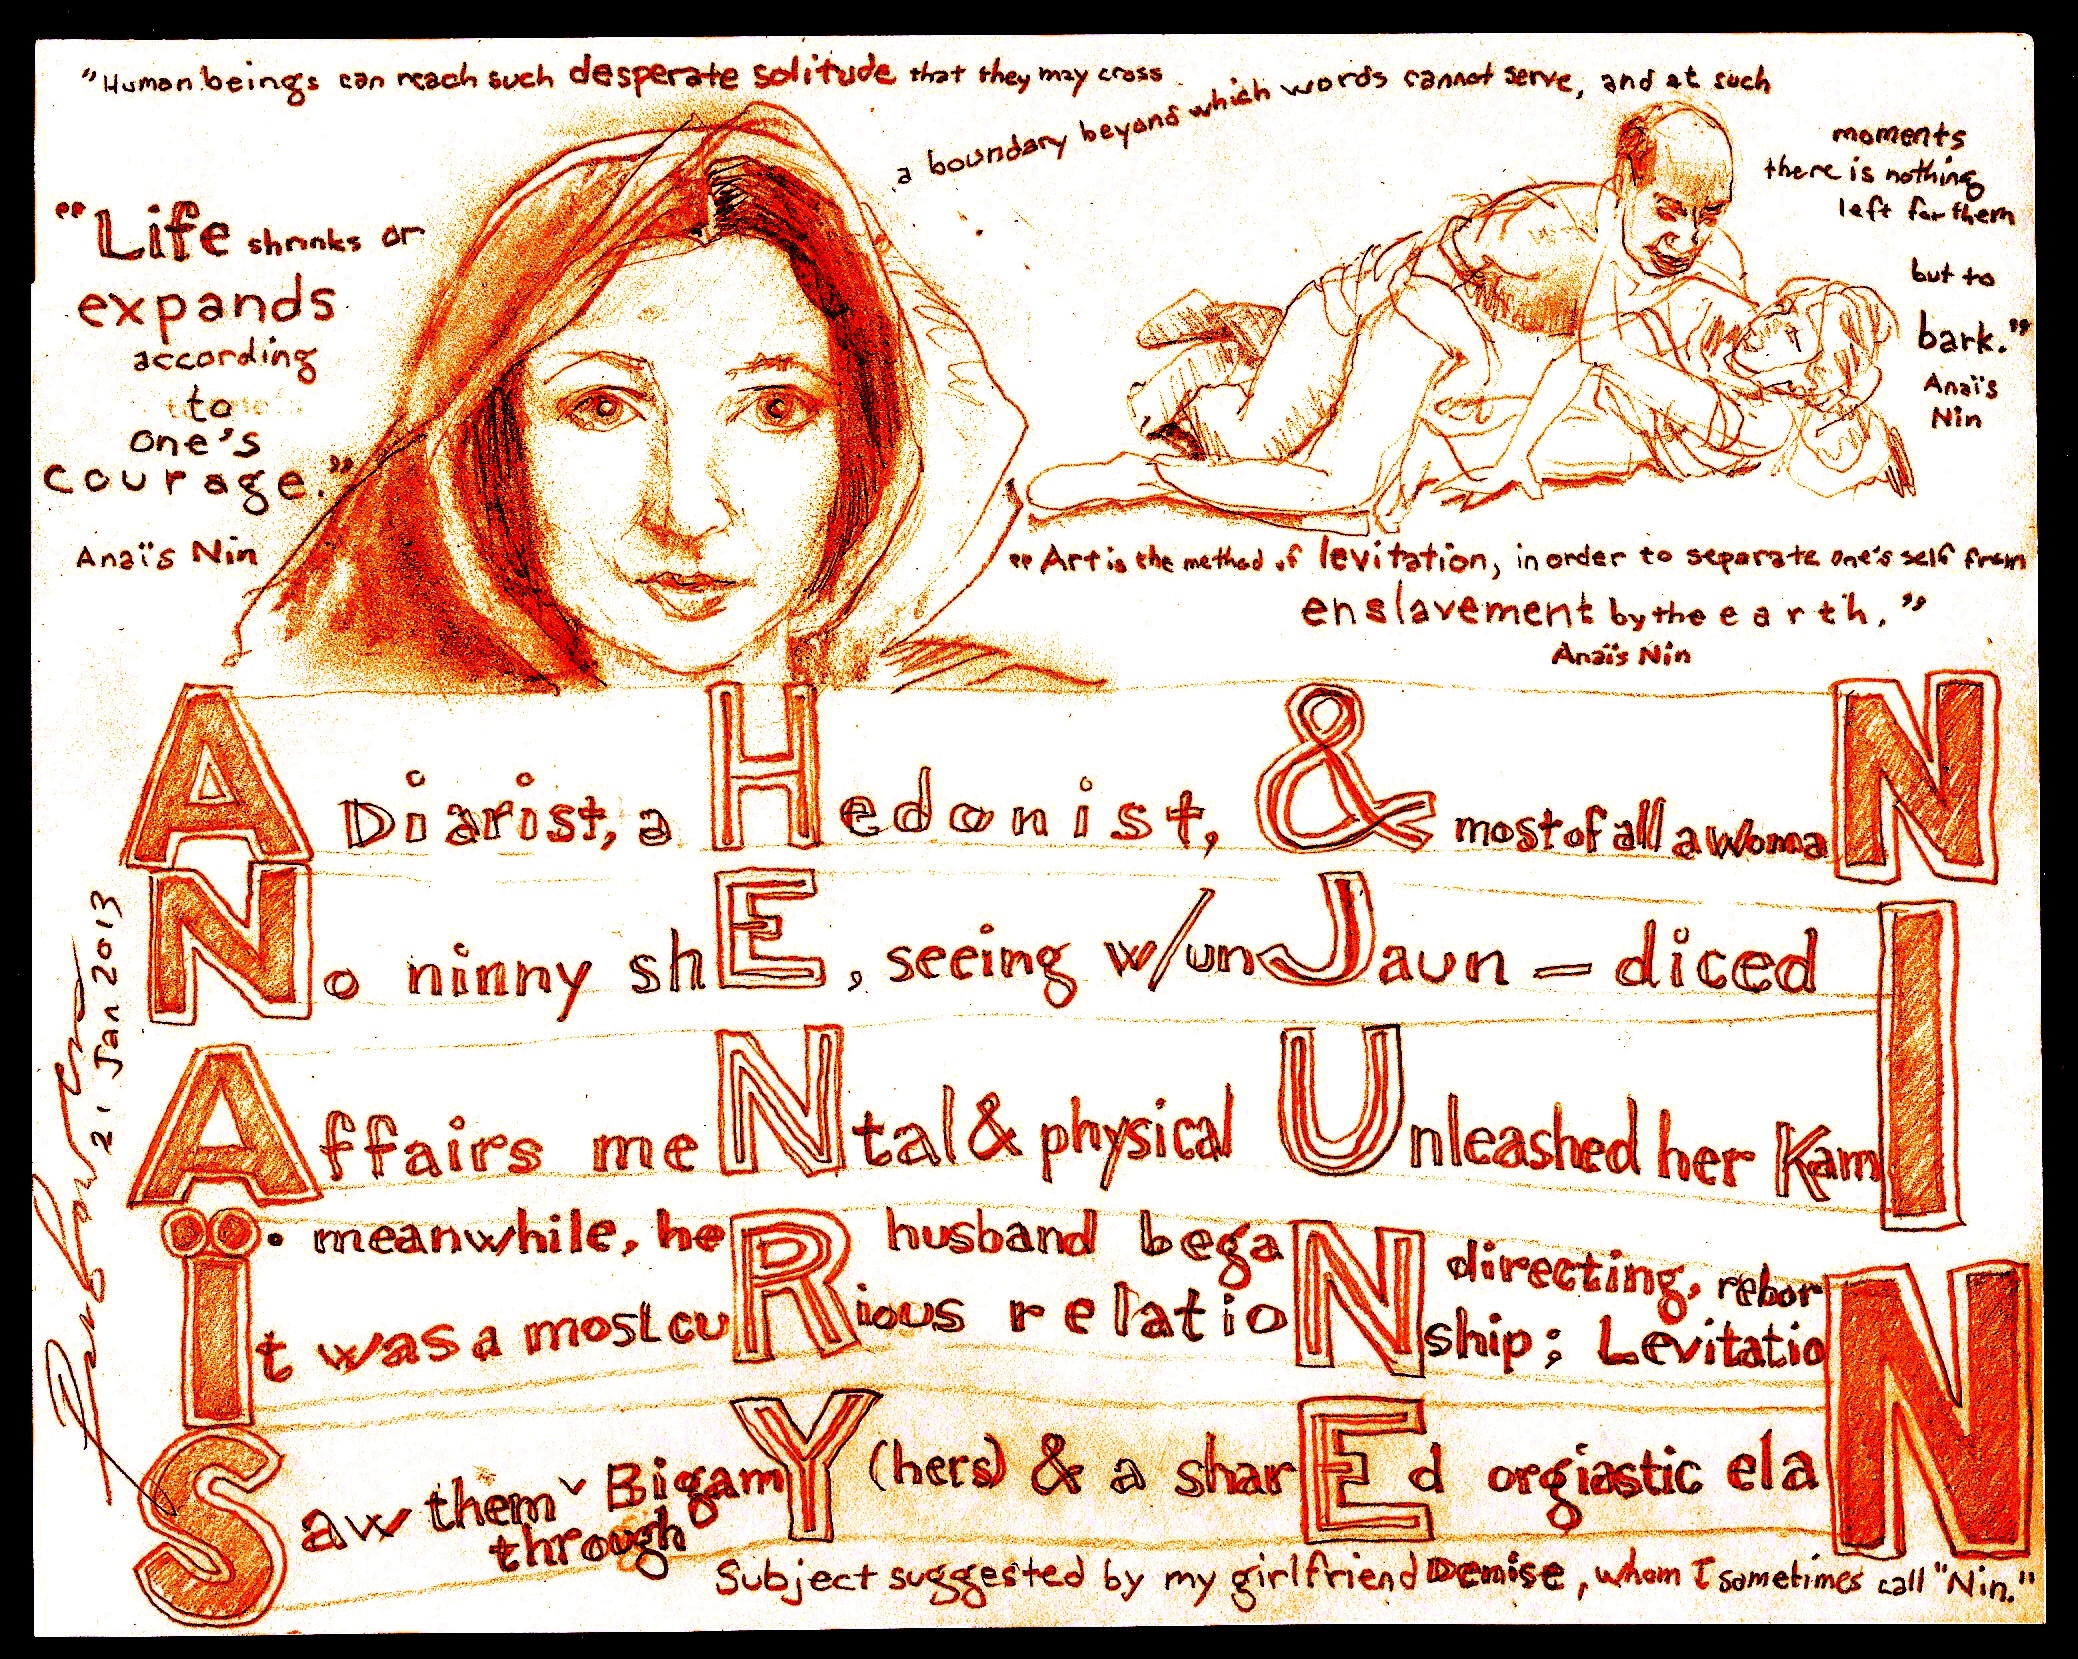 "Human beings can reach such desperate solitude that they may cross
a boundary beyond which words cannot serve, and at such
moments
there is nothing
left for them
but to
bark."
Anaïs
Nin
"Life shrinks or
expands
according
to
one's
courage."
Anaïs Nin
"Art is the method of levitation, in order to separate one's self from
enslavement by the earth."
Anaïs Nin
A Diarist, a Hedonist, & most of all a WomaN
No ninny shE, seeing w/unJaun-diced
Affairs meNtal & physical Unleashed her KamI
meanwhile, heR husband begaN directing, reborN
It was a most cuRious relatioNship; LevitatioN
Saw them through BigamY (hers) & a sharEd orgiastic elaN
Subject suggested by my girlfriend Denise, whom I sometimes call "Nin."
21 Jan 2013